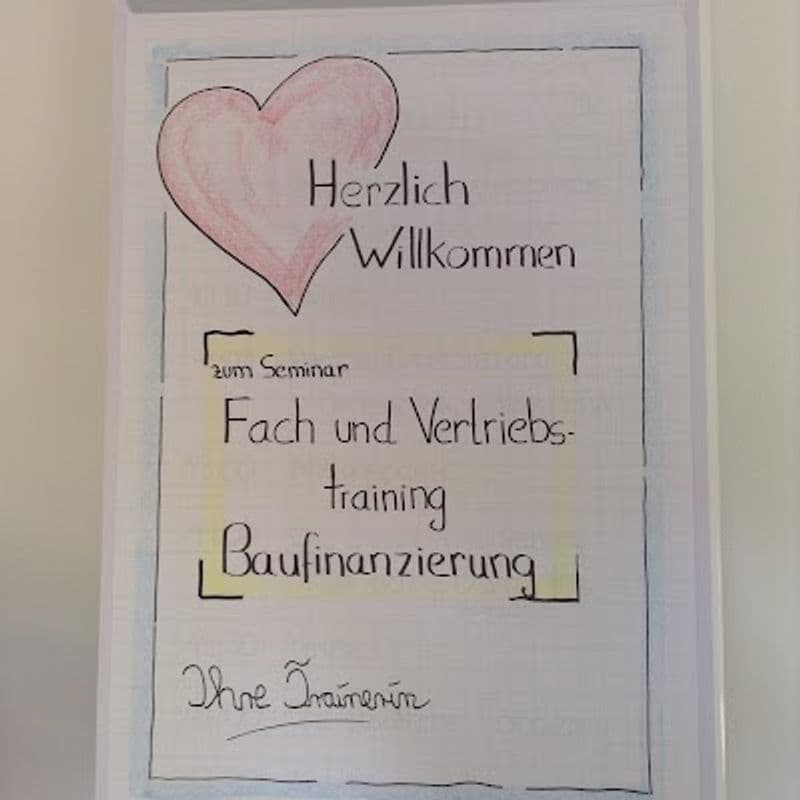 Herzlich
Willkommen
zum Seminar
Fach und Vertriebs-
training
Baufinanzierung
Ihre Trainerin